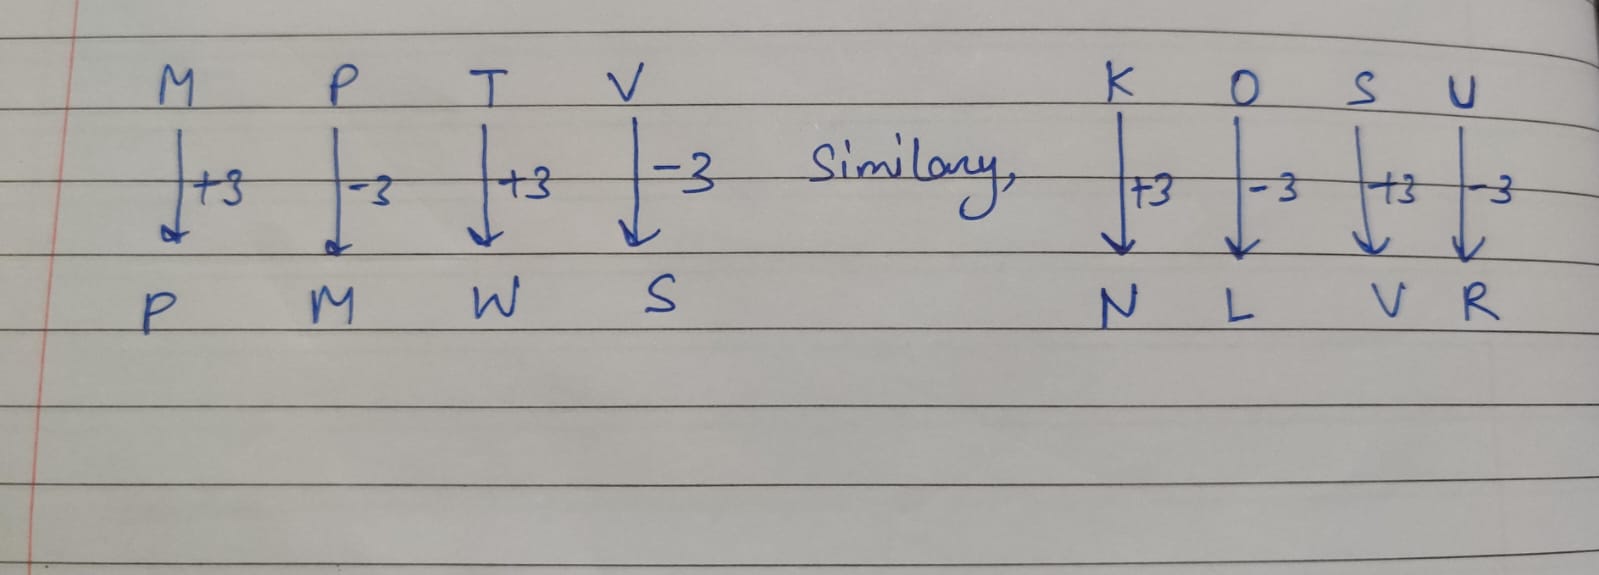 M P T V K O S U
+3 -3 +3 -3 Similary, +3 -3 +3 -3
P M W S N L V R